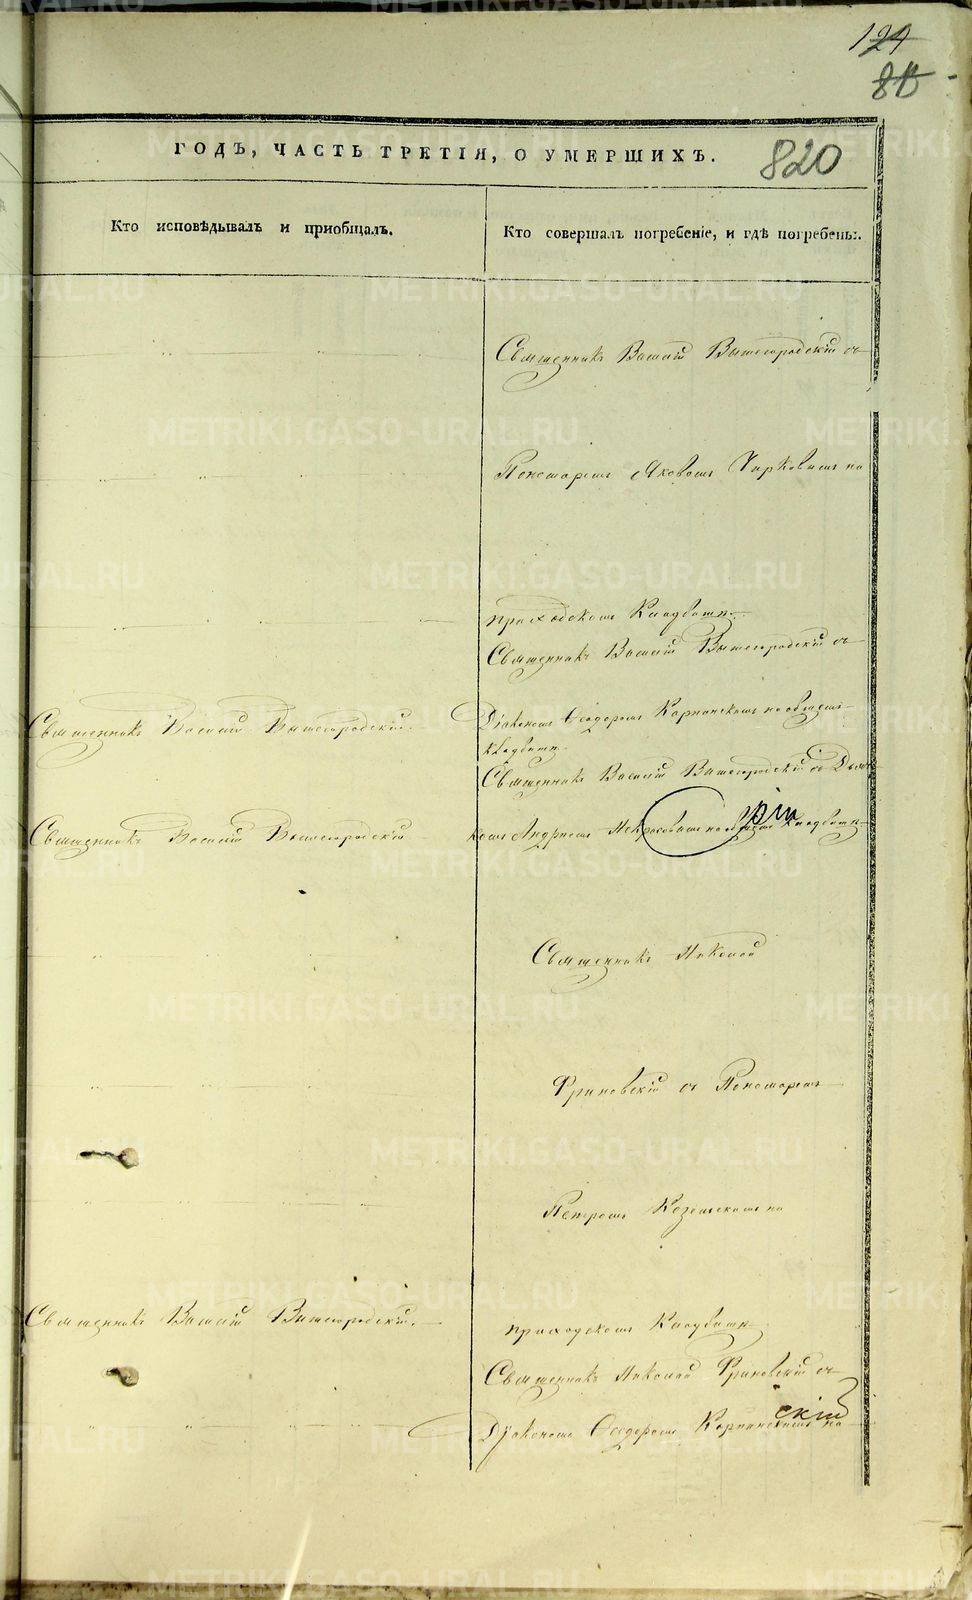 124
820
ГОДЪ, ЧАСТЬ ТРЕТІЯ, О УМЕРШИХЪ.
Кто исповѣдывалъ и приобщалъ.
Кто совершалъ погребеніе, и гдѣ погребены.
Священникъ Василій Вышегородскій съ
Пономаремъ Яковомъ Чирковымъ на
приходскомъ Кладбищѣ
Священникъ Василій Вышегородскій съ
Священникъ Василій Вышегородскій.
Діакономъ Ѳеодоромъ Карпинскимъ на общемъ
кладбищѣ
Священникъ Василій Вышегородскій съ Діако
Священникъ Василій Вышегородскій
номъ Андреемъ Некрасовымъ на общемъ кладбищѣ
Священникъ Николай
Фриновскій съ Пономаремъ
Петромъ Козельскимъ на
Священникъ Василій Вышегородскій.
приходскомъ Кладбищѣ
Священникъ Николай Фриновскій съ
скій
Діакономъ Ѳеодоромъ Карпинскимъ на
METRIKI.GASO-URAL.RU